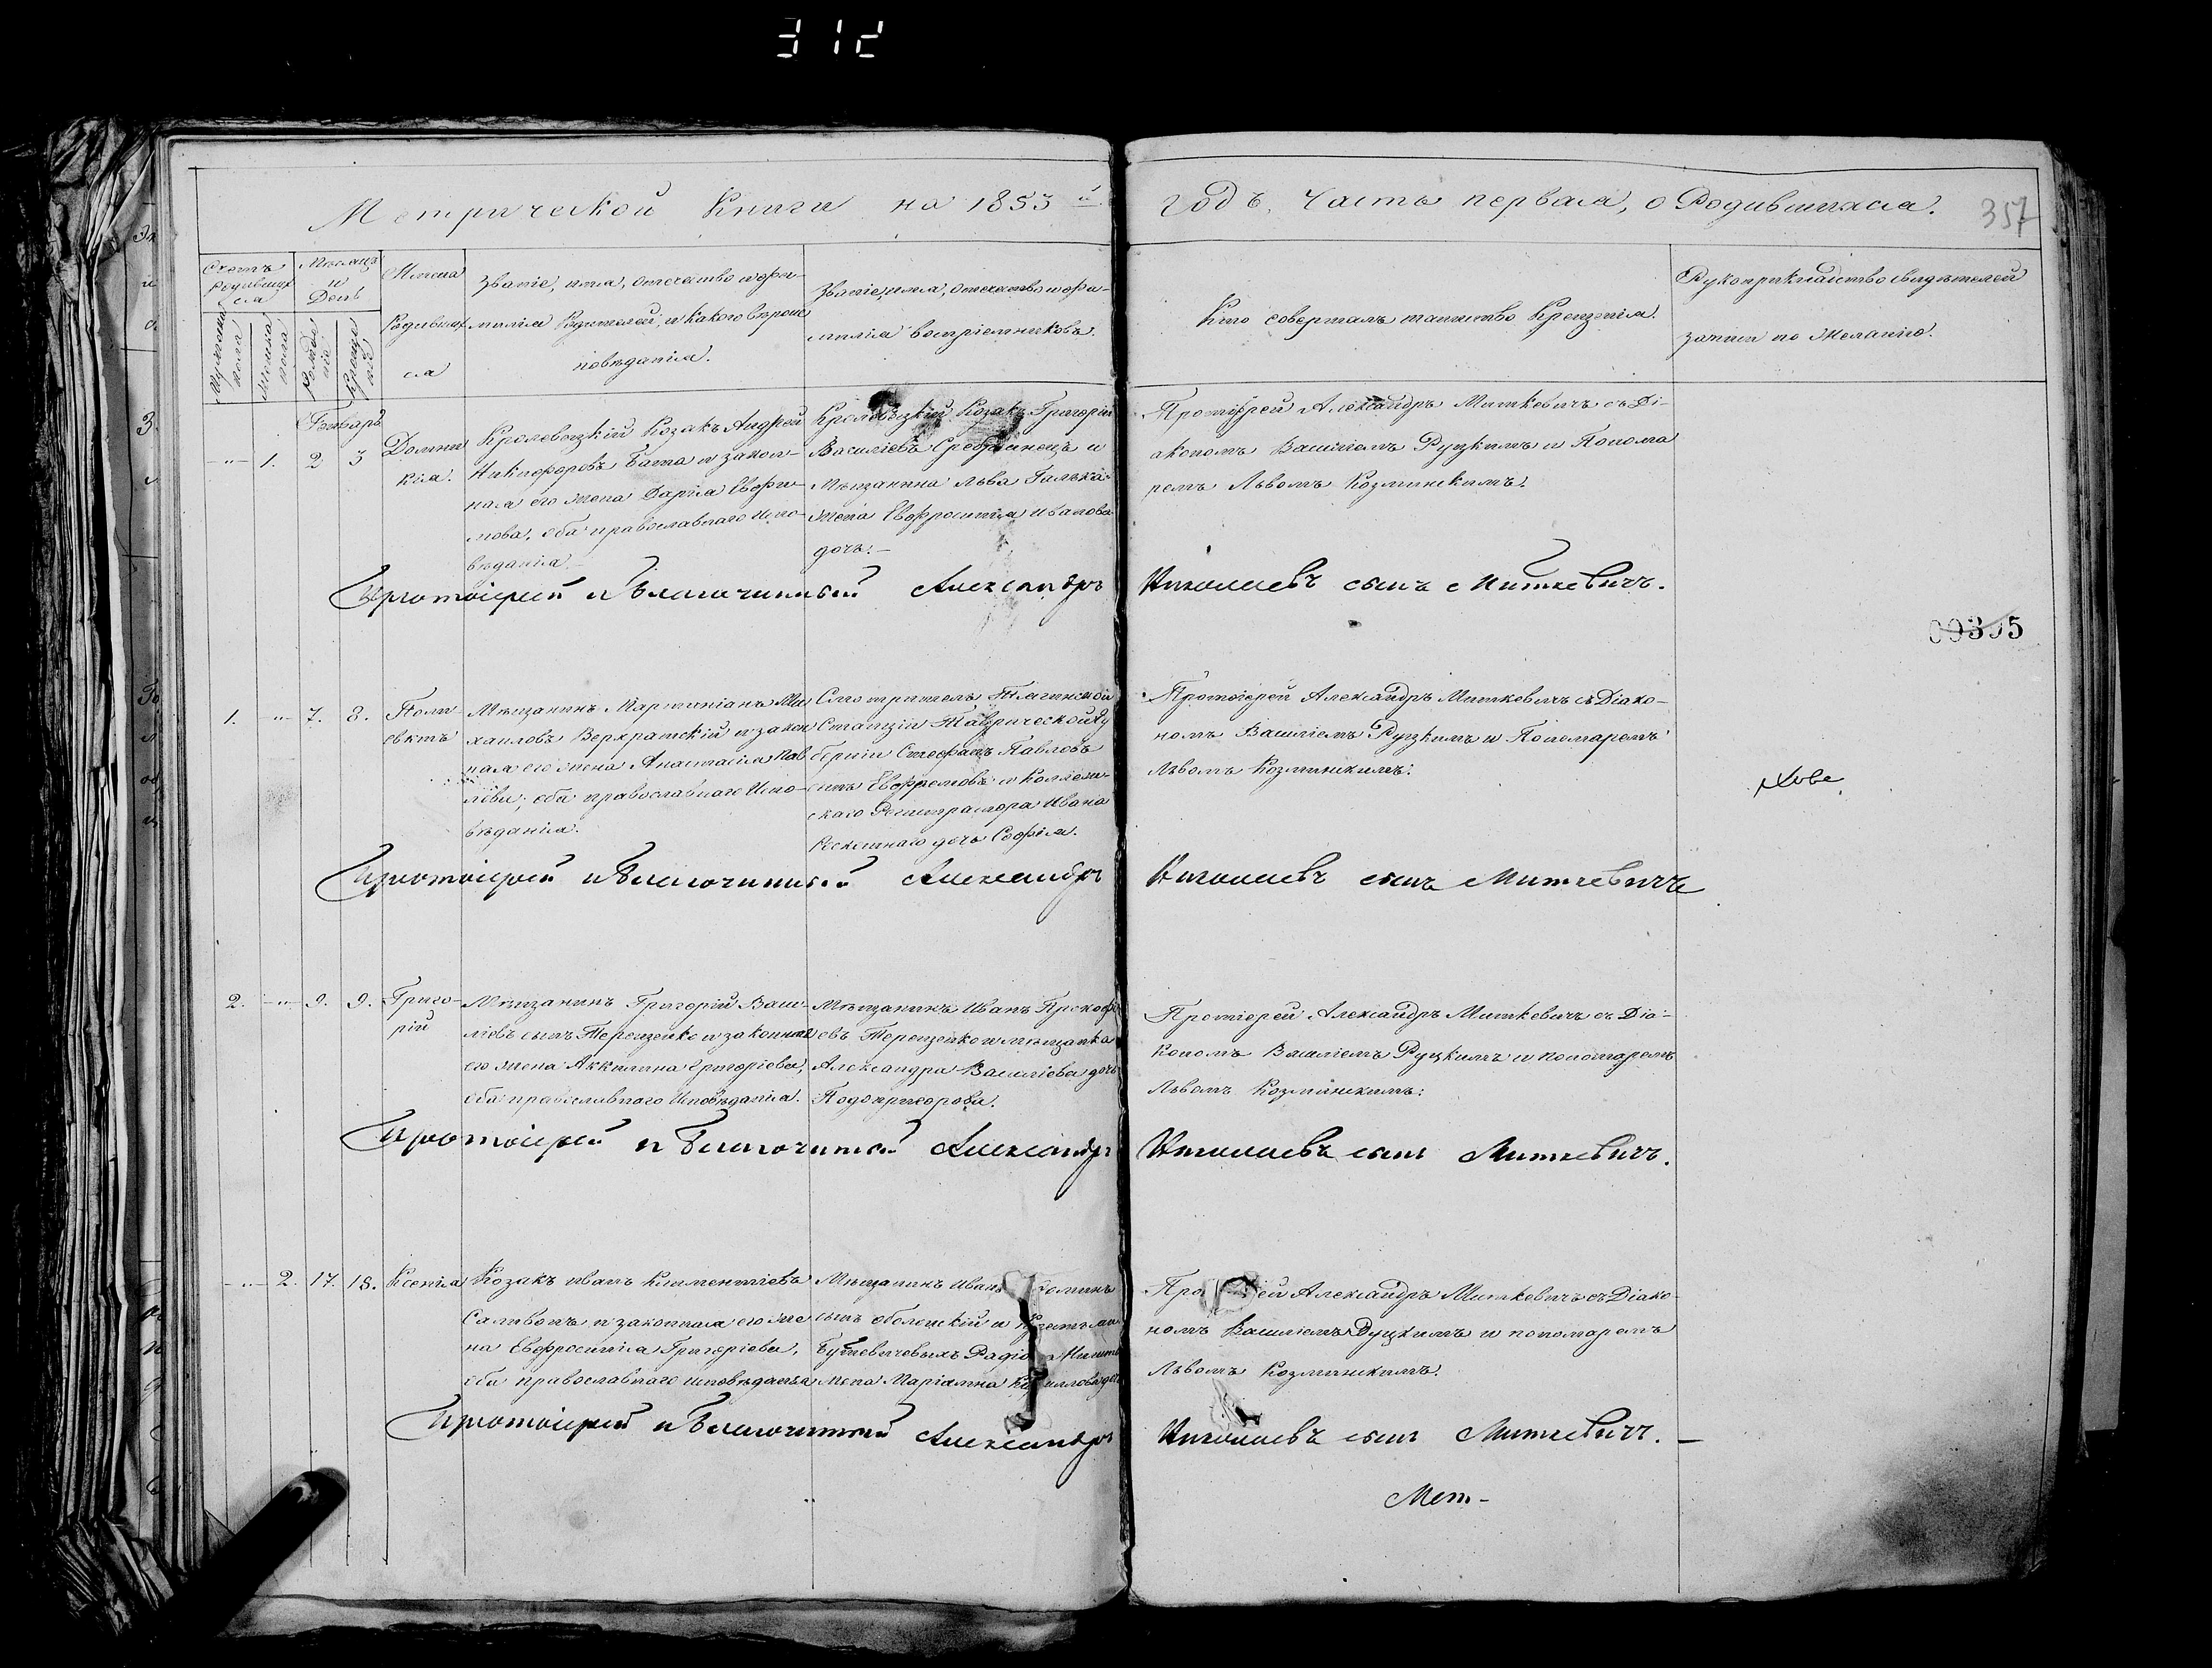 312
Метрической Книги на 1853й
годъ, Часть первая, о Родившихся.
357
Счетъ родившихся
Мѣсяцъ и День
Имена Родившихся
Звание, имя, отечество и фамилия Родителей, и какого вѣроисповѣдания.
Званіе, имя, отечество и фамилія воспріемниковъ.
Кто совершалъ таинство Крещенія.
Рукоприкладство свидѣтелей записи по желанію.
Мужеска пола
Женска пола
Рожденіе
Крещеніе
Генварь
1.
2
3
Домникія.
Кролевецкій Козакъ Андрей
Никифоровъ Бата и закон-
ная его жена Дарія Евфи-
мова, оба православнаго испо-
вѣданія.
Кролевецкій Козакъ Григорій
Василіевъ Сребранецъ и
Мѣщанина Льва Галька
жена Евфросинія Иванова
дочь.
Протоіерей Александръ Миткевичъ съ Ді-
акономъ Василіемъ Руцкимъ и Понома
ремъ Львомъ Козминскимъ.
Протоіерей и Благочинный Александръ
Николаевъ сынъ Миткевичъ.
00305
1.
7.
8.
Поли
евктъ
Мѣщанинъ Мартиніанъ Ми
хаиловъ Верхратскій и закон
ная его жена Анастасія Пав
лова, оба православнаго Испо-
вѣданія.
Смотритель
Станціи Таврической Гу
берніи Стефанъ Павловъ
сынъ Евфремовъ и Коллежи-
скаго Регистратора Ивана
дочь Софія.
Протоіерей Александръ Миткевичъ съ Діако-
номъ Василіемъ Руцкимъ и Пономаремъ
Львомъ Козминскимъ.
Протоіерей и Благочинный Александръ
Николаевъ сынъ Миткевичъ
2.
9.
9.
Григо-
рій
Мѣщанинъ Григорій Васи-
ліевъ сынъ Терещенко и законная
его жена Аккилина Григоріева,
оба православного Исповѣданія.
Мѣщанинъ Иванъ Прокофі
евъ Терещенко и мѣщанка
Александра Василіева дочь
Подопригорова.
Протоіерей Александръ Миткевичъ съ Діа-
кономъ Василіемъ Руцкимъ и пономаремъ
Львомъ Козминскимъ.
Протоіерей и Благочинный Александръ
Николаевъ сынъ Миткевичъ.
2.
17.
18.
Ксенія
Козакъ Иванъ Климентіевъ
и законная его же
на Евфросинія Григоріева,
оба православного исповѣданія
Мѣщанинъ Иванъ
сынъ Оболонскій и
жена Маріамна
Александръ Миткевичъ съ Діако-
номъ Василіемъ Руцкимъ и пономаремъ
Львомъ Козминскимъ.
Протоіерей и Благочинный Александръ
Николаевъ сынъ Миткевичъ.
Мет-